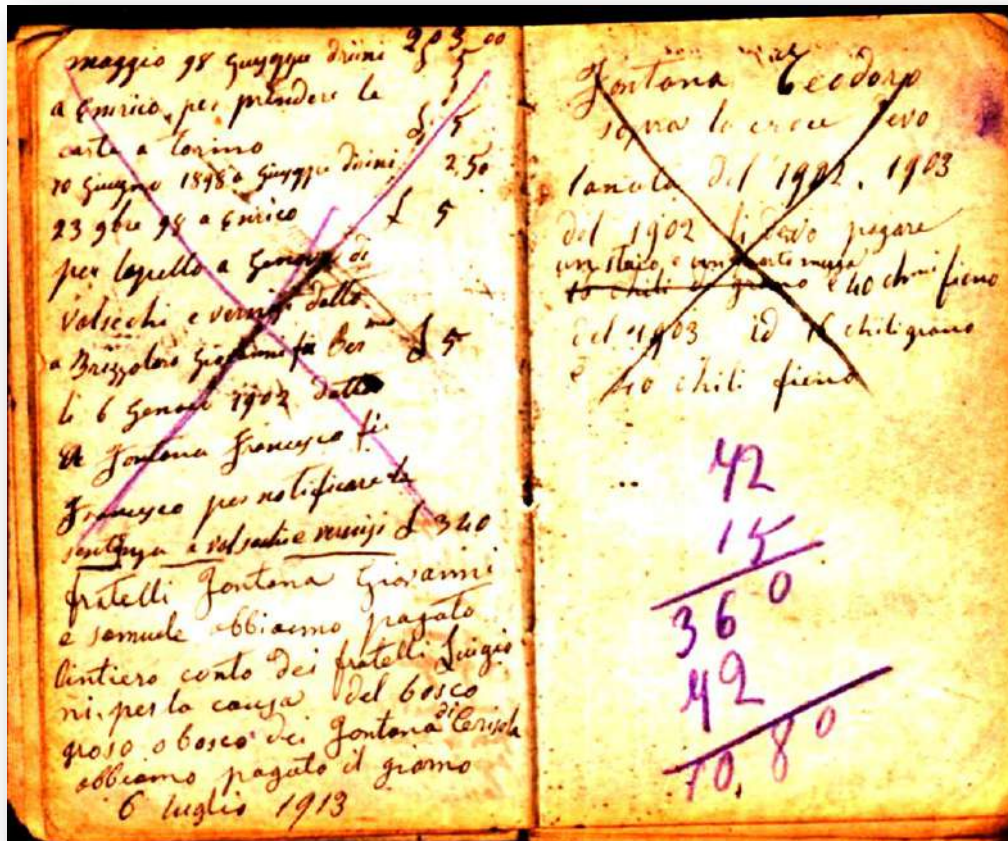 203.00
maggio 98 Giuseppe £ 5
a Enrico per prendere le
carte a torino £ 5
10 Giugno 1898 a Giuseppe 2,50
23 9bre 98 a Enrico £ 5
per lapello a Genova di
valsechi e datto
a Gio fu £ 5
li 6 Genaio 1902 datto
a Fontana Francesco fu
Francesco per notificare la
sentenza a valsechi e £ 3 40
fratelli Fontana Giovanni
e samuele abbiamo pagato
lintiero conto dei fratelli Luigio
ni, per la causa del bosco
groso o bosco dei Fontana di Cerisola
abbiamo pagato il giorno
6 luglio 1913
Fontana Teodoro
sopra la croce devo
lanata del 1902. 1903
del 1902 li devo pagare
un staio e un quarto
chili grano e 40 fieno
del 1903 id 16 chili grano
e 40 chili fieno
42
15
360
42
10,80